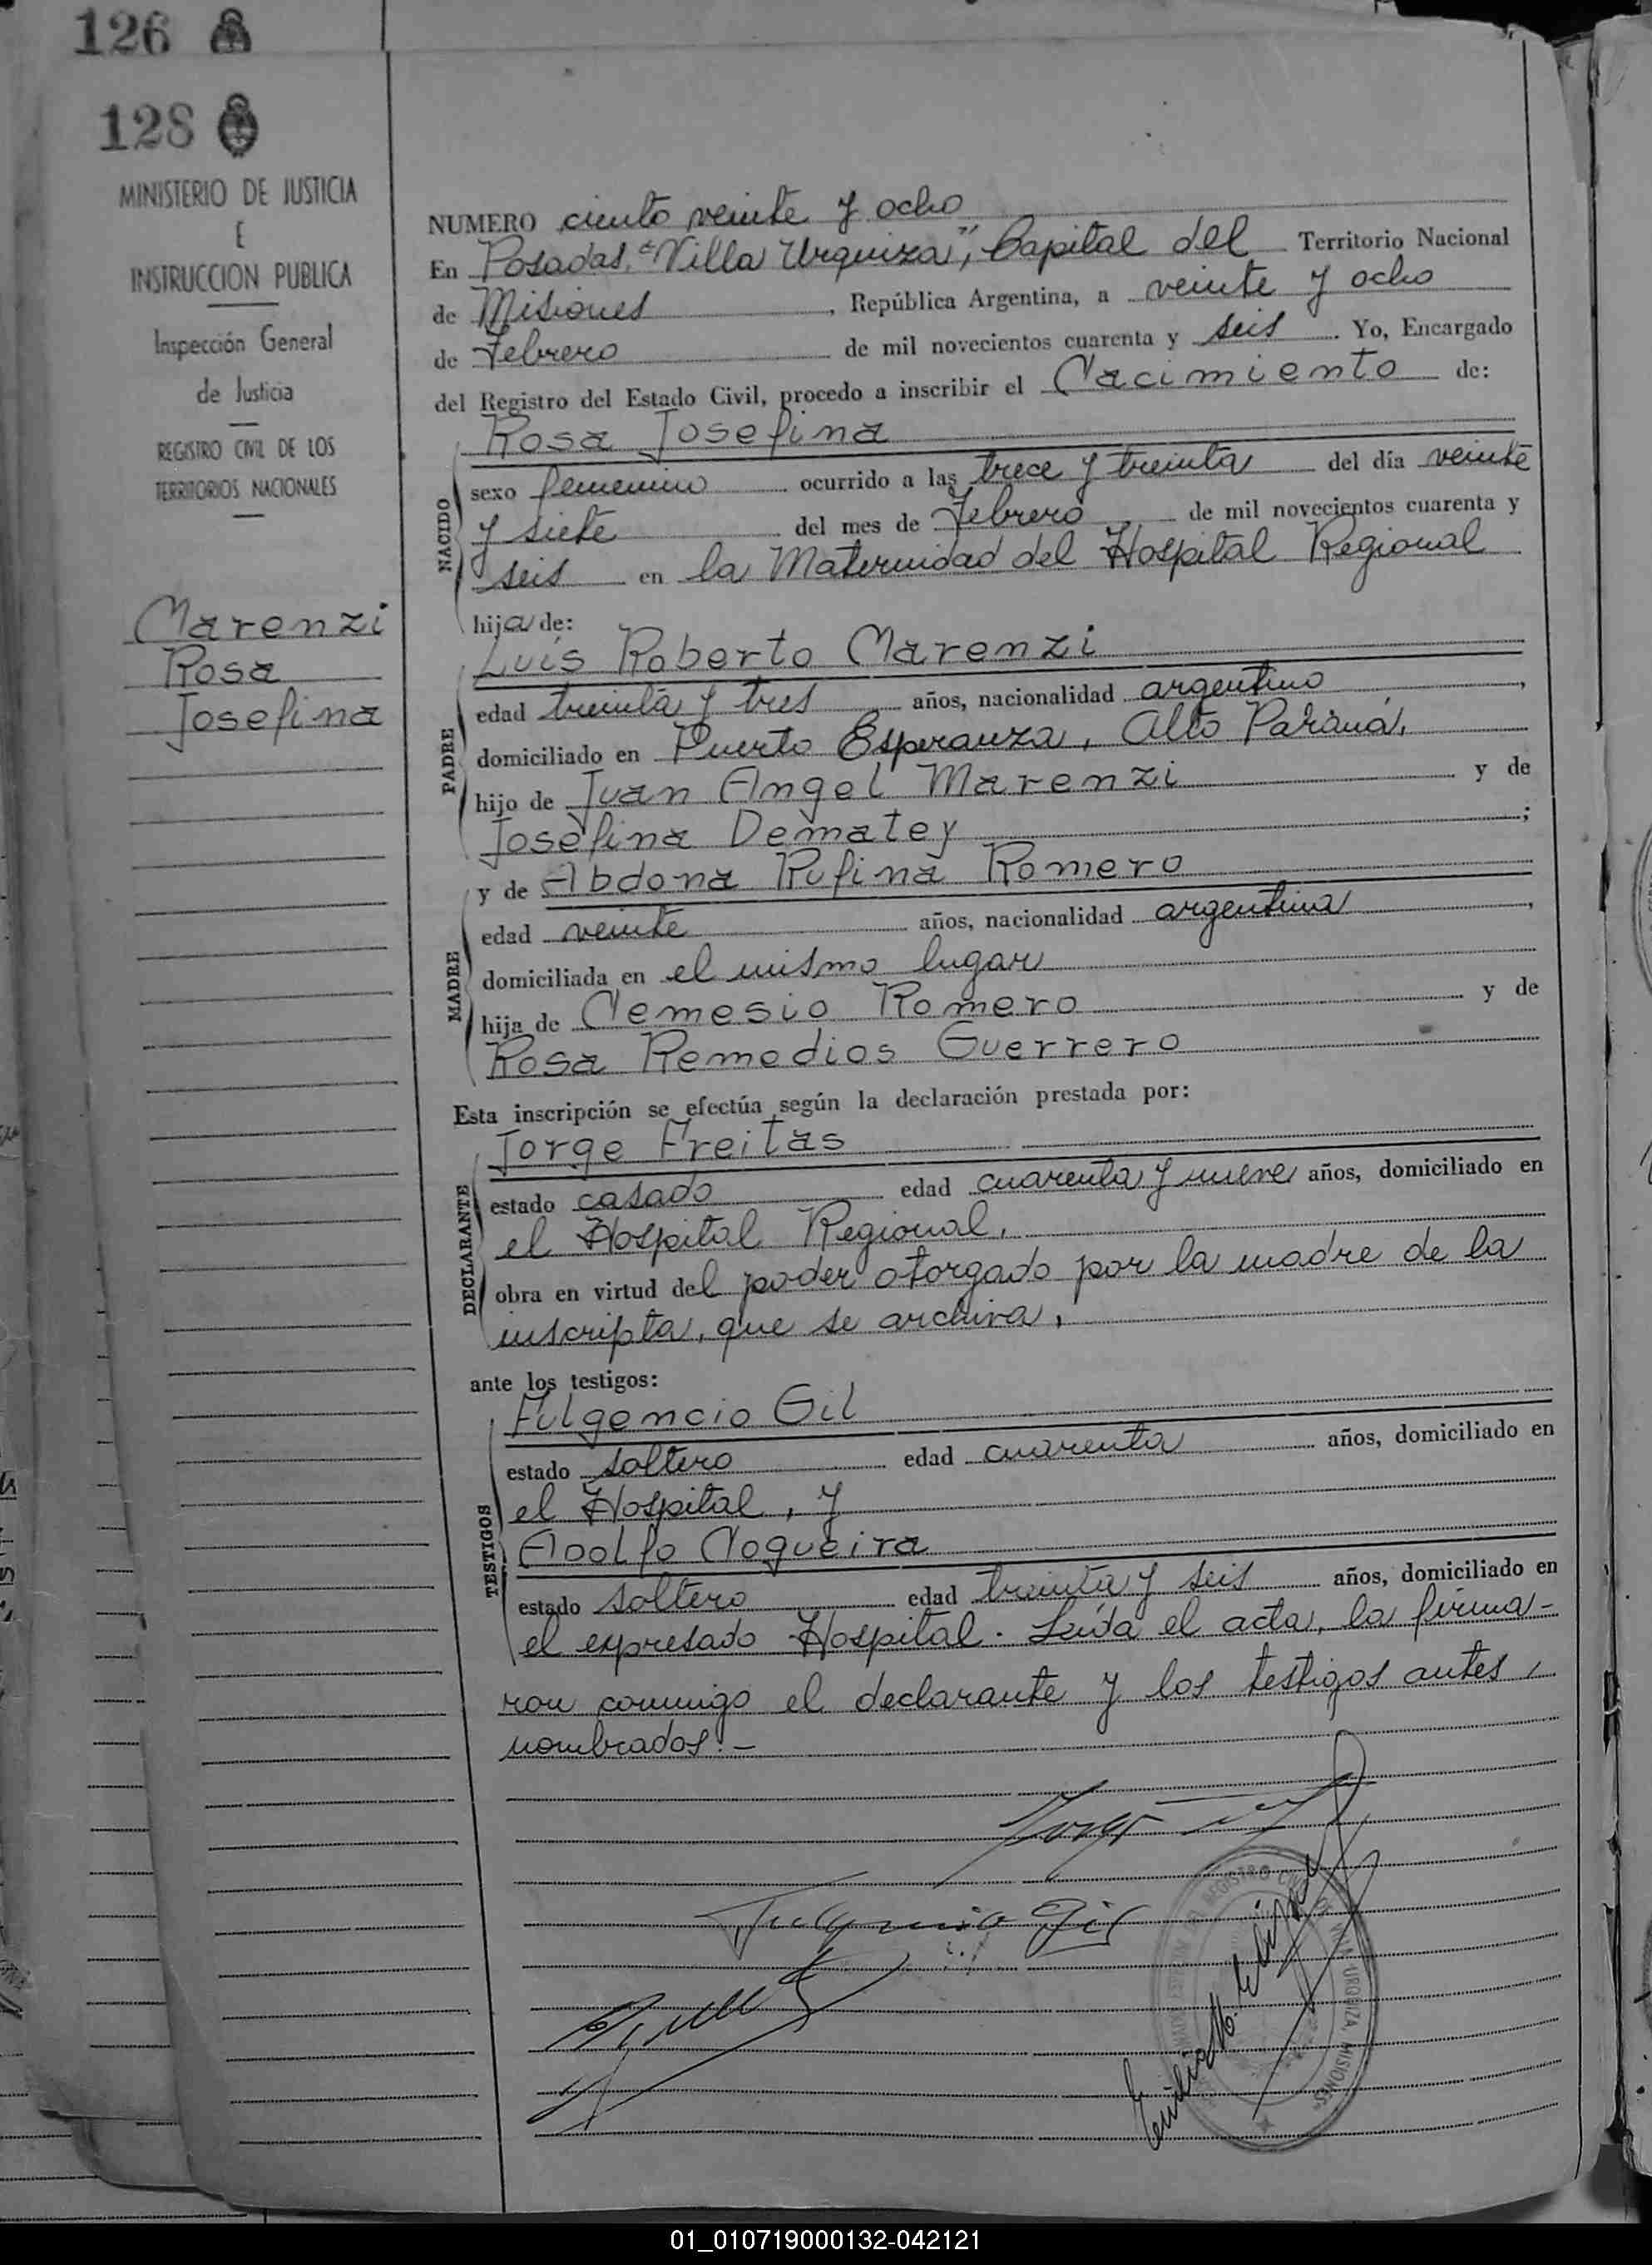 126
128
MINISTERIO DE JUSTICIA
E
INSTRUCCION PUBLICA
Inspección General
de Justicia
REGISTRO CIVIL DE LOS
TERRITORIOS NACIONALES
Marenzi
Rosa
Josefina
NUMERO ciento veinte y ocho
En Posadas, "Villa Urquiza", Capital del Territorio Nacional
de Misiones, República Argentina, a veinte y ocho
de Febrero de mil novecientos cuarenta y seis. Yo, Encargado
del Registro del Estado Civil, procedo a inscribir el Nacimiento de:
Rosa Josefina
NACIDO
sexo femenino ocurrido a las trece y treinta del día veinte
y siete del mes de Febrero de mil novecientos cuarenta y
seis en la Maternidad del Hospital Regional
hija de:
Luis Roberto Marenzi
PADRE
edad treinta y tres años, nacionalidad argentino,
domiciliado en Puerto Esperanza, Alto Paraná,
hijo de Juan Angel Marenzi y de
Josefina Dematey;
y de Abdona Rufina Romero
MADRE
edad veinte años, nacionalidad argentina,
domiciliada en el mismo lugar
hija de Nemesio Romero y de
Rosa Remedios Guerrero
Esta inscripción se efectúa según la declaración prestada por:
Jorge Freitas
DECLARANTE
estado casado edad cuarenta y nueve años, domiciliado en
el Hospital Regional,
obra en virtud del poder otorgado por la madre de la
inscripta, que se archiva,
ante los testigos:
Fulgencio Gil
TESTIGOS
estado soltero edad cuarenta años, domiciliado en
el Hospital, y
Adolfo Nogueira
estado soltero edad treinta y seis años, domiciliado en
el expresado Hospital. Leída el acta, la firma-
ron conmigo el declarante y los testigos antes
nombrados.-
Fulgencio Gil
REGISTRO CIVIL DE VILLA URQUIZA MISIONES
01_010719000132-042121